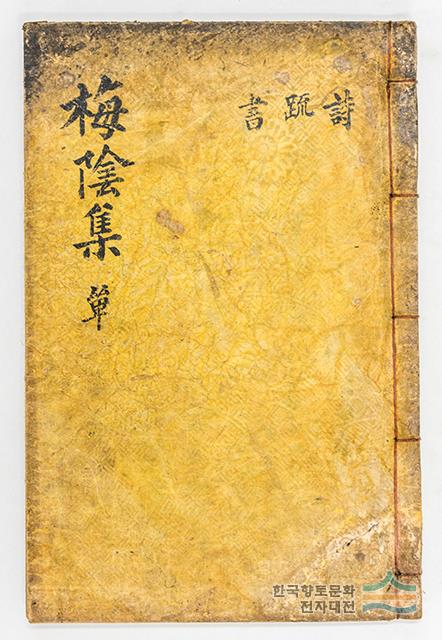 梅陰集 單
詩 疏 書
한국향토문화
전자대전